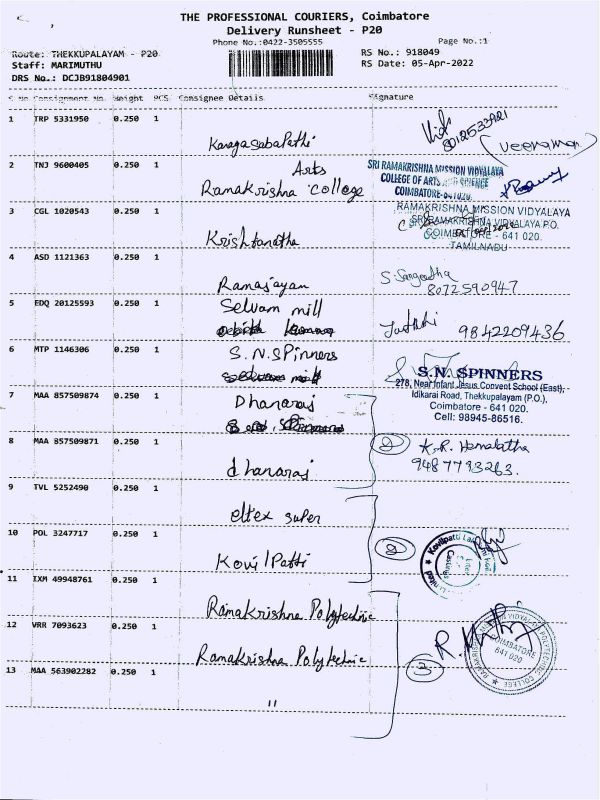 THE PROFESSIONAL COURIERS, Coimbatore
Delivery Runsheet - P20
Phone No.:0422-3505555
Page No.:1
Route: THEKKUPALAYAM - P20
RS No.: 918049
Staff: MARIMUTHU
RS Date: 05-Apr-2022
DRS No.: DCJB91804901
S No Consignment No. Weight PCS Consignee Details Signature
1 TRP 5331950 0.250 1
Kanagasabapathi
(Veeraman)
2 TNJ 9600405 0.250 1
Arts
Ramakrishna College
SRI RAMAKRISHNA MISSION VIDYALAYA
COLLEGE OF ARTS AND SCIENCE
COIMBATORE-641020.
3 CGL 1020543 0.250 1
RAMAKRISHNA MISSION VIDYALAYA
SRI RAMAKRISHNA VIDYALAYA P.O.
COIMBATORE - 641 020.
TAMILNADU
4 ASD 1121363 0.250 1
Ramajayam
S. Sangeetha
8072590947
5 EDQ 20125593 0.250 1
Selvam mill
9842209436
6 MTP 1146306 0.250 1
S.N.SPinners
S.N. SPINNERS
278, Near Infant Jesus Convent School (East),
Idikarai Road, Thekkupalayam (P.O.),
Coimbatore - 641 020.
Cell: 98945-86516.
7 MAA 857509874 0.250 1
Dhanaraj
8 MAA 857509871 0.250 1
dhanaraj
2
K.R. Hemalatha
9487793263.
9 TVL 5252490 0.250 1
eltex super
10 POL 3247717 0.250 1
KovilPatti
2
11 IXM 49948761 0.250 1
Ramakrishna Polytechnic
12 VRR 7093623 0.250 1
Ramakrishna Polytechnic
3
COIMBATORE
641 020
13 MAA 563902282 0.250 1
"